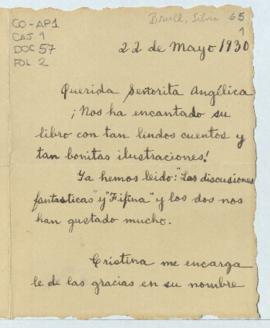 CO-AP1
CAJ 1
DOC 57
FOL 2
Brull, Silvia 65
1
22 de Mayo 1930
Querida Señorita Angélica
¡Nos ha encantado su
libro con tan lindos cuentos y
tan bonitas ilustraciones!
Ya hemos leido: "Las discusiones
fantasticas" y "Fifina" y los dos nos
han gustado mucho.
Cristina me encarga
le de las gracias en su nombre